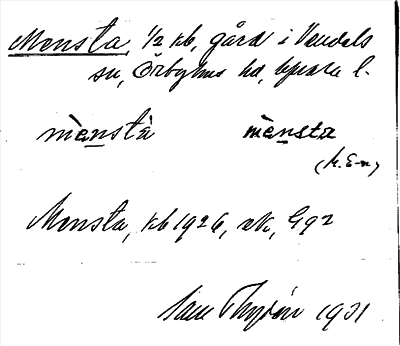 Mensta, 1/2 kb, gård i Vendels
sn, Örbyhus hd, Upsala l.
mènstà mènsta
(M. E-n)
Mensta, kb 1926, ek., G 92
Sam Thyrén 1931